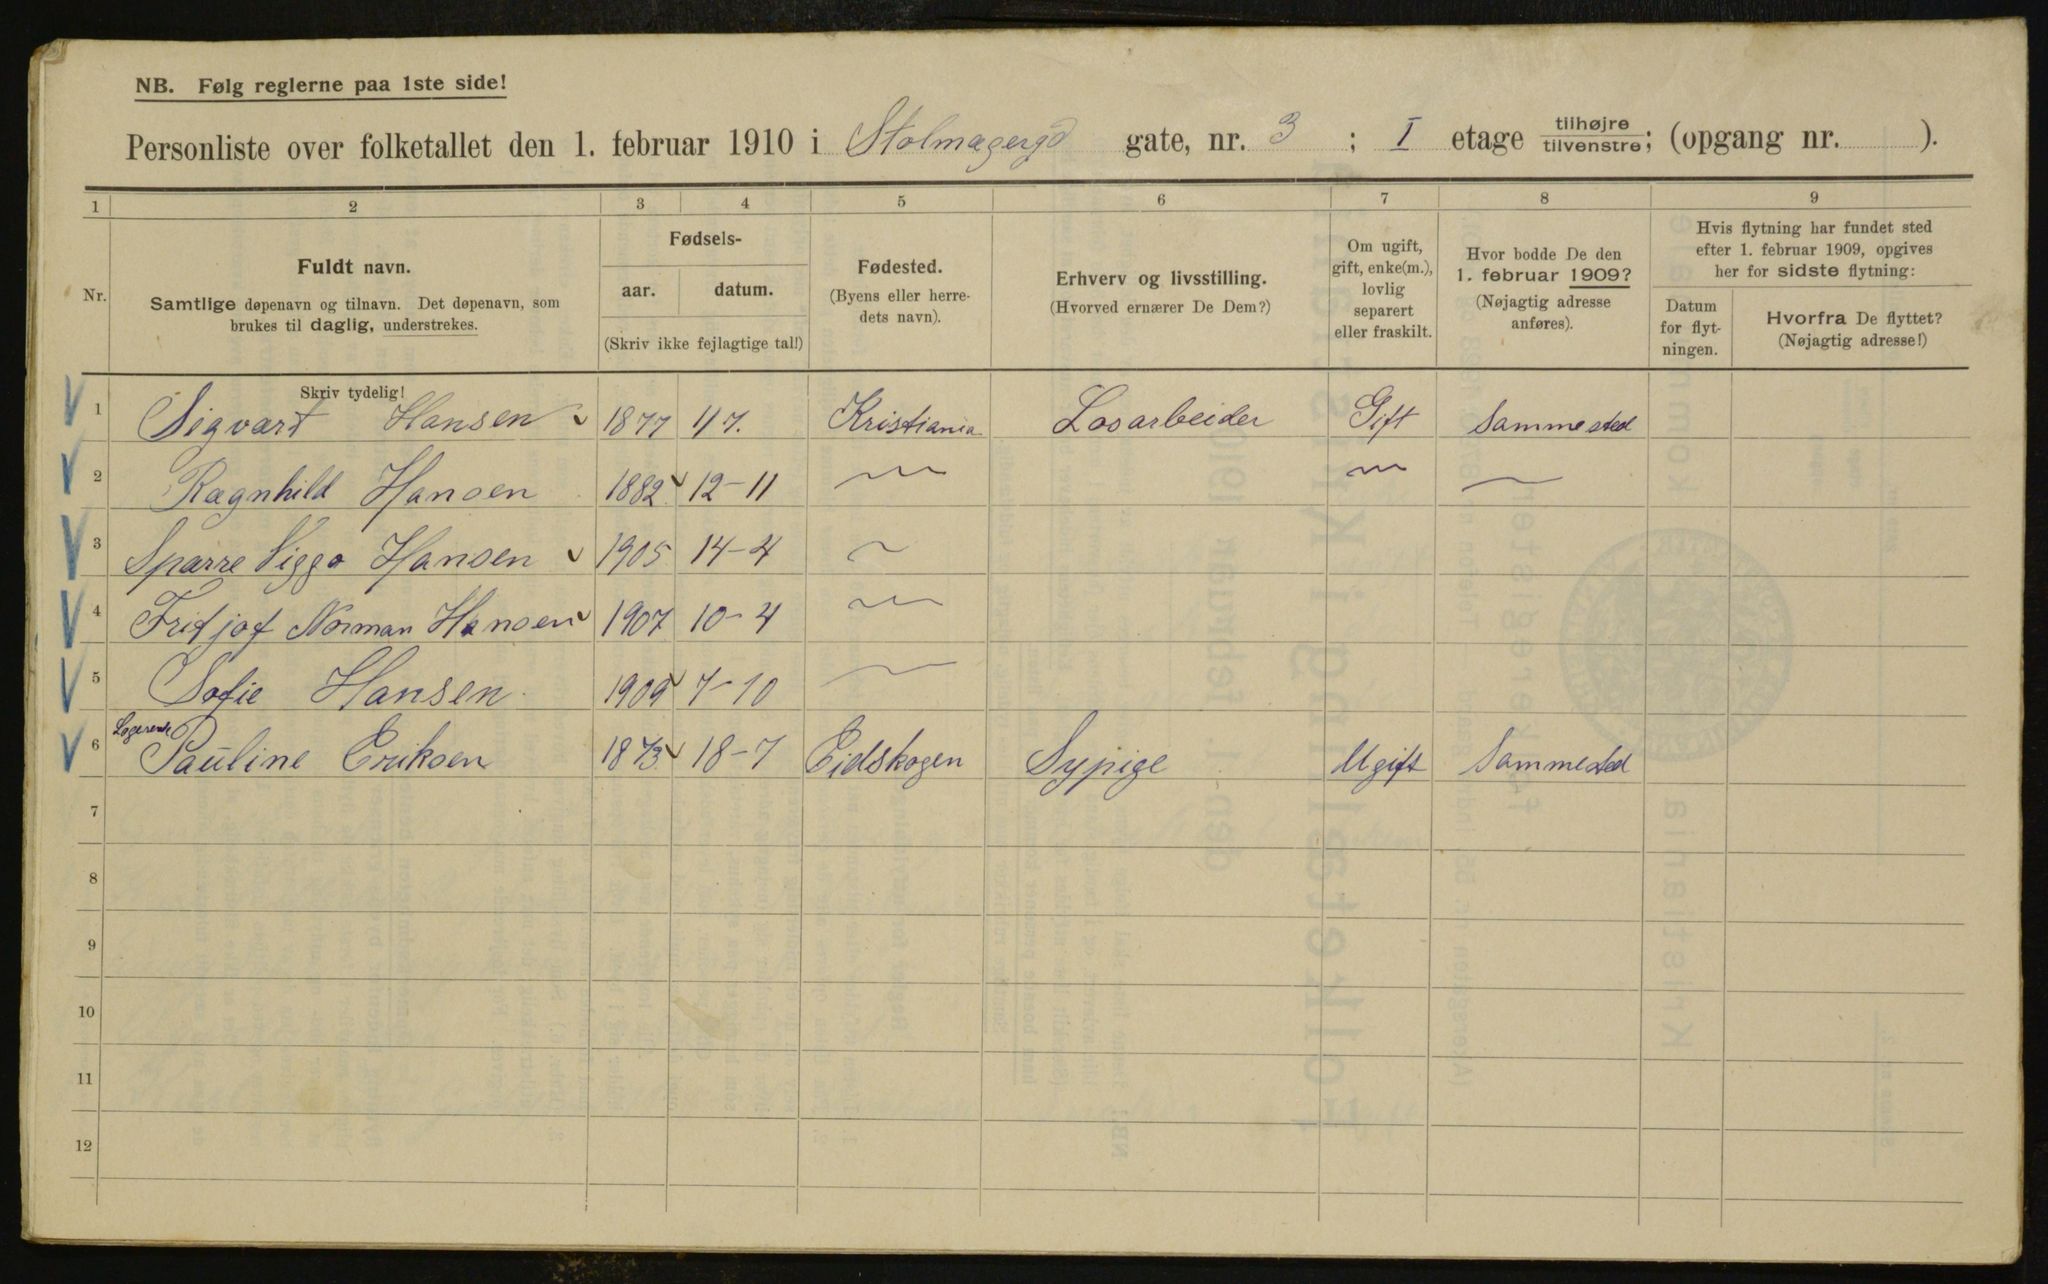 NB. Følg reglerne paa 1ste side!
Personliste over folketallet den 1. februar 1910 i Stolmagergd gate, nr. 3 ; I etage tilhøjre tilvenstre; (opgang nr. ).
1 2 3 4 5 6 7 8 9
Nr.
Fuldt navn.
Samtlige døpenavn og tilnavn. Det døpenavn, som
brukes til daglig, understrekes.
Fødsels-
aar. datum.
(Skriv ikke fejlagtige tal!)
Fødested.
(Byens eller herre-
dets navn).
Erhverv og livsstilling.
(Hvorved ernærer De Dem?)
Om ugift,
gift, enke(m.),
lovlig
separert
eller fraskilt.
Hvor bodde De den
1. februar 1909?
(Nøjagtig adresse
anføres).
Hvis flytning har fundet sted
efter 1. februar 1909, opgives
her for sidste flytning:
Datum
for flyt-
ningen.
Hvorfra De flyttet?
(Nøjagtig adresse!)
Skriv tydelig!
1 Sigvart Hansen 1877 Kristiania Losarbeider Gift Sammested
2 Ragnhild Hansen 1882 12-11 — — —
3 Sparre Viggo Hansen 1905 14-4 —
4 Fridjof Norman Hansen 1907 10-4 —
5 Sofie Hansen 1909 7-10 —
Logerende
6 Pauline Eriksen 1873 18-7 Eidskogen Sypige Ugift Sammested
7
8
9
10
11
12